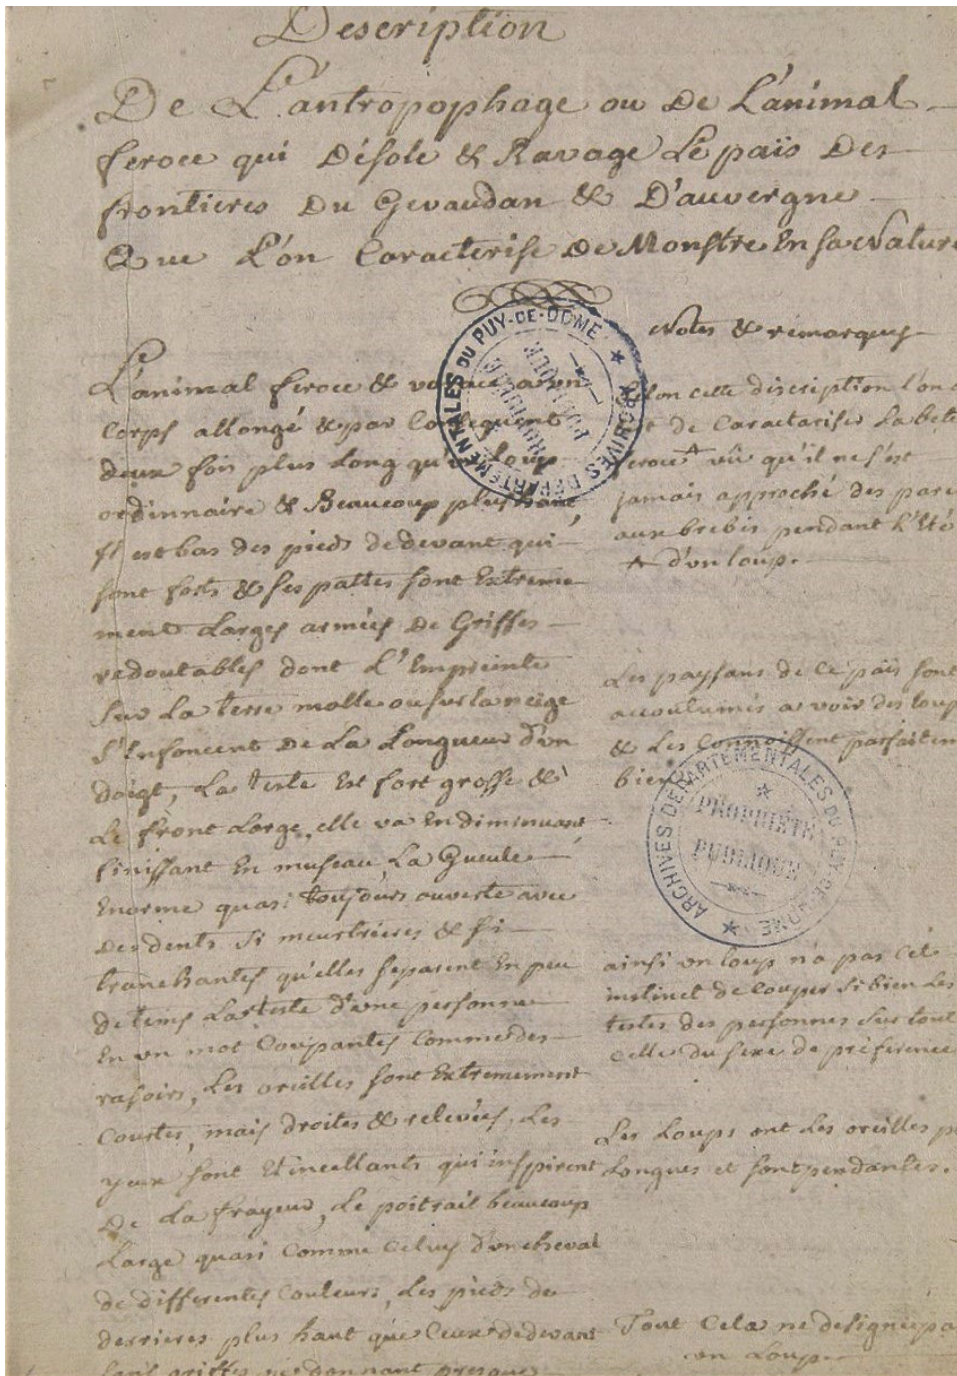 Description
De L'antropophage ou de L'animal
feroce qui Désole & Ravage Le païs Des
frontieres Du Gevaudan & D'auvergne
Que L'on Caracterise de Monstre En sa Nature
Notes & remarques
L'animal feroce & vorace a un
Corps allongé & par Consequent
deux fois plus Long qu'un Loup
ordinnaire & Beaucoup plus haut,
il est bas des pieds de devant qui
sont forts & ses pattes sont Extreme
ment Larges armées De Griffes
redoutables dont L'Empreinte
sur La terre molle ou sur la neige
s'Enfoncent De La Longueur d'un
doigt, La teste Est fort grosse &
Le front Large, elle va En diminuant
finissant En museau, La Gueule
Enorme quasi toujours ouverte avec
Des dents si meurtrieres & si
tranchantes qu'elles separent En peu
de tems La teste d'une personne
En un mot Coupantes Comme des
rasoirs, Les oreilles sont Extremement
Courtes, mais droites & relevées, Les
yeux sont Etincellants qui inspirent
De La frayeur, Le poitrail beaucoup
Large quasi Comme Celuy d'un cheval
de differentes Couleurs, Les pieds de
derrieres plus haut que Ceux de devant
cette discription l'on
de Caracteriser La bete
feroce + vû qu'il ne s'est
jamais approché des parc
aux brebis pendant L'Eté
+ d'un loup.
Les paysans de Ce païs sont
accoutumés a voir des loup
& Les Connoissent parfaitem
bien
ainsi un loup n'a pas Cet
instinct de Couper si bien Les
testes des personnes sur tout
Celle du sexe de preference
Les Loups ont Les oreilles p
Longues et sont pendantes.
Tout Cela ne designe pa
un Loup
ARCHIVES DÉPARTEMENTALES DU PUY-DE-DÔME
PROPRIÉTÉ
PUBLIQUE
ARCHIVES DÉPARTEMENTALES DU PUY-DE-DÔME
PROPRIÉTÉ
PUBLIQUE